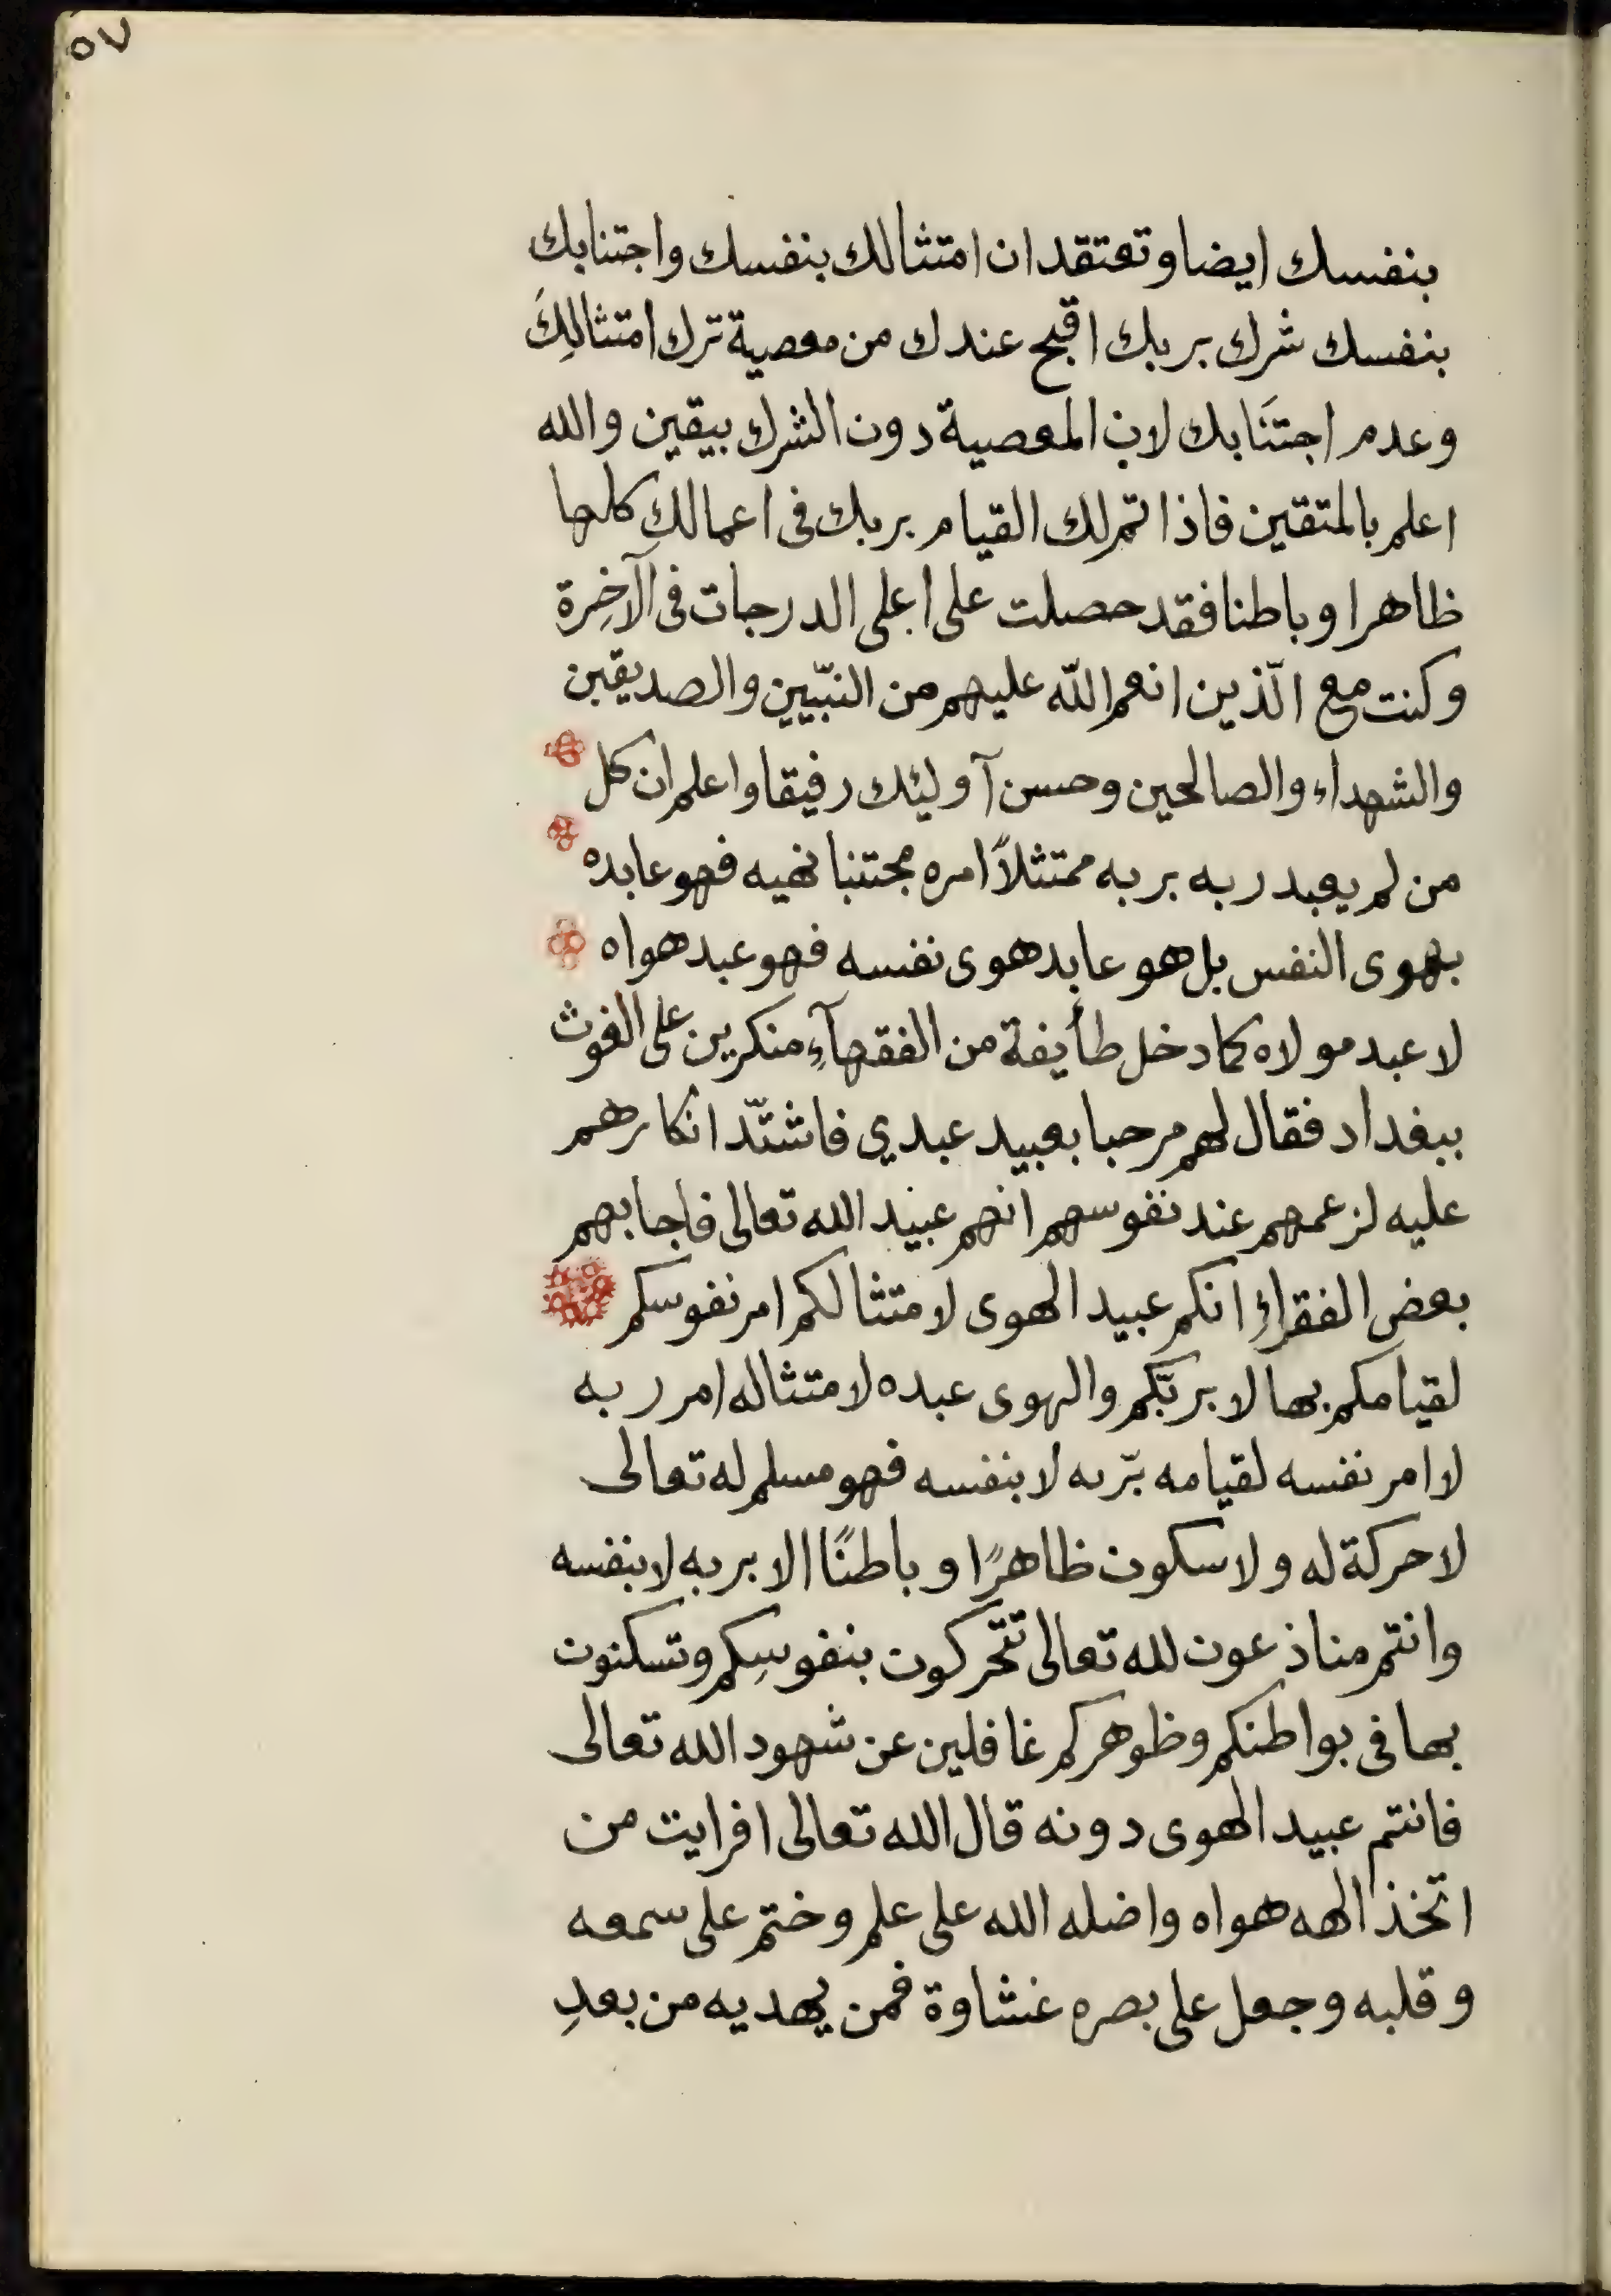 ٥٧
بنفسك ايضا وتعتقد ان امتثالك بنفسك واجتنابك
بنفسك شرك بربك اقبح عندك من معصية ترك امتثالِكَ
وعدم اجتنَابك لان المعصية دون الشرك بيقين والله
اعلم بالمتقين فاذا تم لك القيام بربك فى اعمالكِ كلها
ظاهرا وباطنا فقد حصلت على اعلى الدرجات فى الآخِرة
وكنت مع الّذين انعم اللّه عليهم من النبّيين والصديقين
والشهداء والصالحين وحسن آوليئك رفيقا واعلم ان كل
من لم يعبد ربه بربه ممتثلاً امره مجتنبا نهيه فهو عابده
بهوى النفس بل هو عابد هوى نفسه فهو عبد هواه
لا عبد مولاه كما دخل طأيفة من الفقهآءِ منكرين على الغوث
ببغداد فقال لهم مرحبا بعبيد عبدي فاشتدّ انكارهم
عليه لزعمهم عند نفوسهم انهم عبيد الله تعالى فاجابهم
بعض الفقراءِ انكم عبيد الهوى لامتثالكم امر نفوسكم
لقيامكم بها لا بربّكم والهوى عبده لامتثاله امر ربه
لا امر نفسه لقيامه برّبه لا بنفسه فهو مسلم له تعالى
لا حركة له ولا سكون ظاهرًا وباطنًا الا بربه لا بنفسه
وانتم مناذعون لله تعالى تتحركون بنفوسِكم وتسكنون
بها فى بواطنكم وظوهركم غافلين عن شهود الله تعالى
فانتم عبيد الهوى دونه قال الله تعالى افرايت من
اتخذ الهه هواه واضله الله على علم وختم على سمعه
وقلبه وجعل على بصره غشاوة فمن يهديه من بعدِ